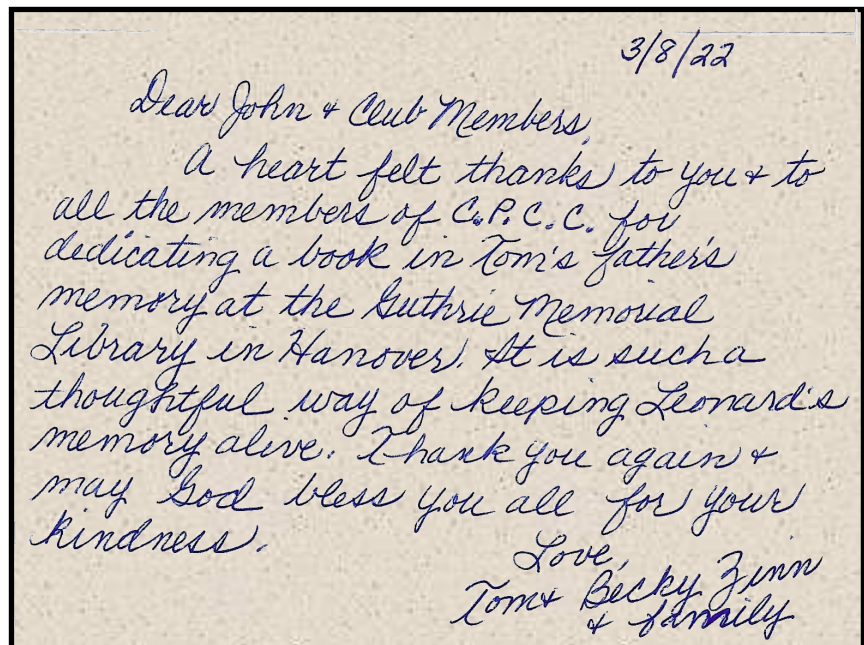 3/8/22
Dear John & Club Members,
A heart felt thanks to you & to
all the members of C.P.C.C. for
dedicating a book in Tom's father's
memory at the Guthrie Memorial
Library in Hanover. It is such a
thoughtful way of keeping Leonard's
memory alive. Thank you again &
may God bless you all for your
kindness.
Love,
Tom & Becky Zinn
& family